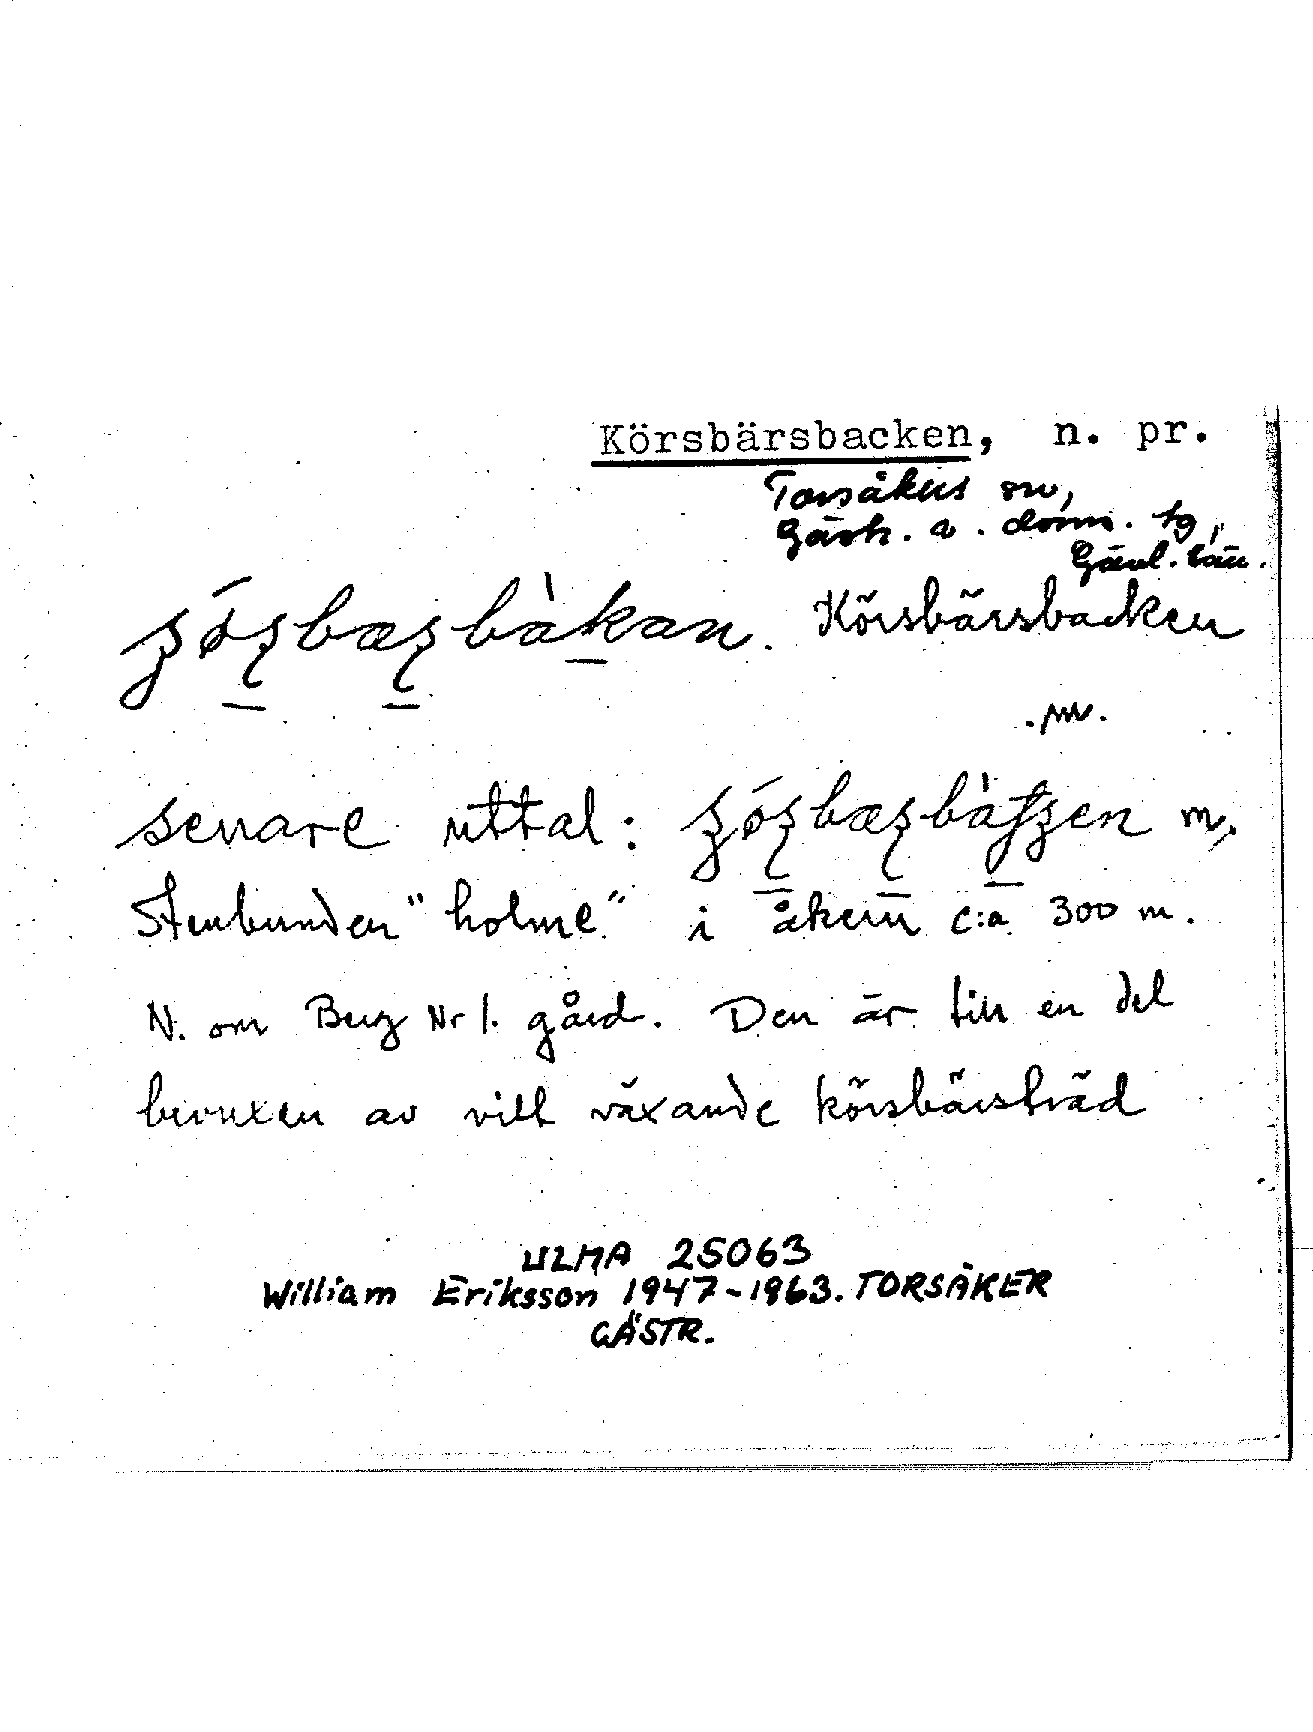 Körsbärsbacken, n. pr.
Torsåkers sn,
Gästr. ö. doms. tg,
Gävl. län.
Körsbärsbacken
senare uttal: m,
Stenbunden "holme" i åkern c:a 300 m.
N. om Berg Nr 1. gård. Den är till en del
bevuxen av vilt växande körsbärsträd
ULMA 25063
William Eriksson 1947-1963. TORSÅKER
GÄSTR.